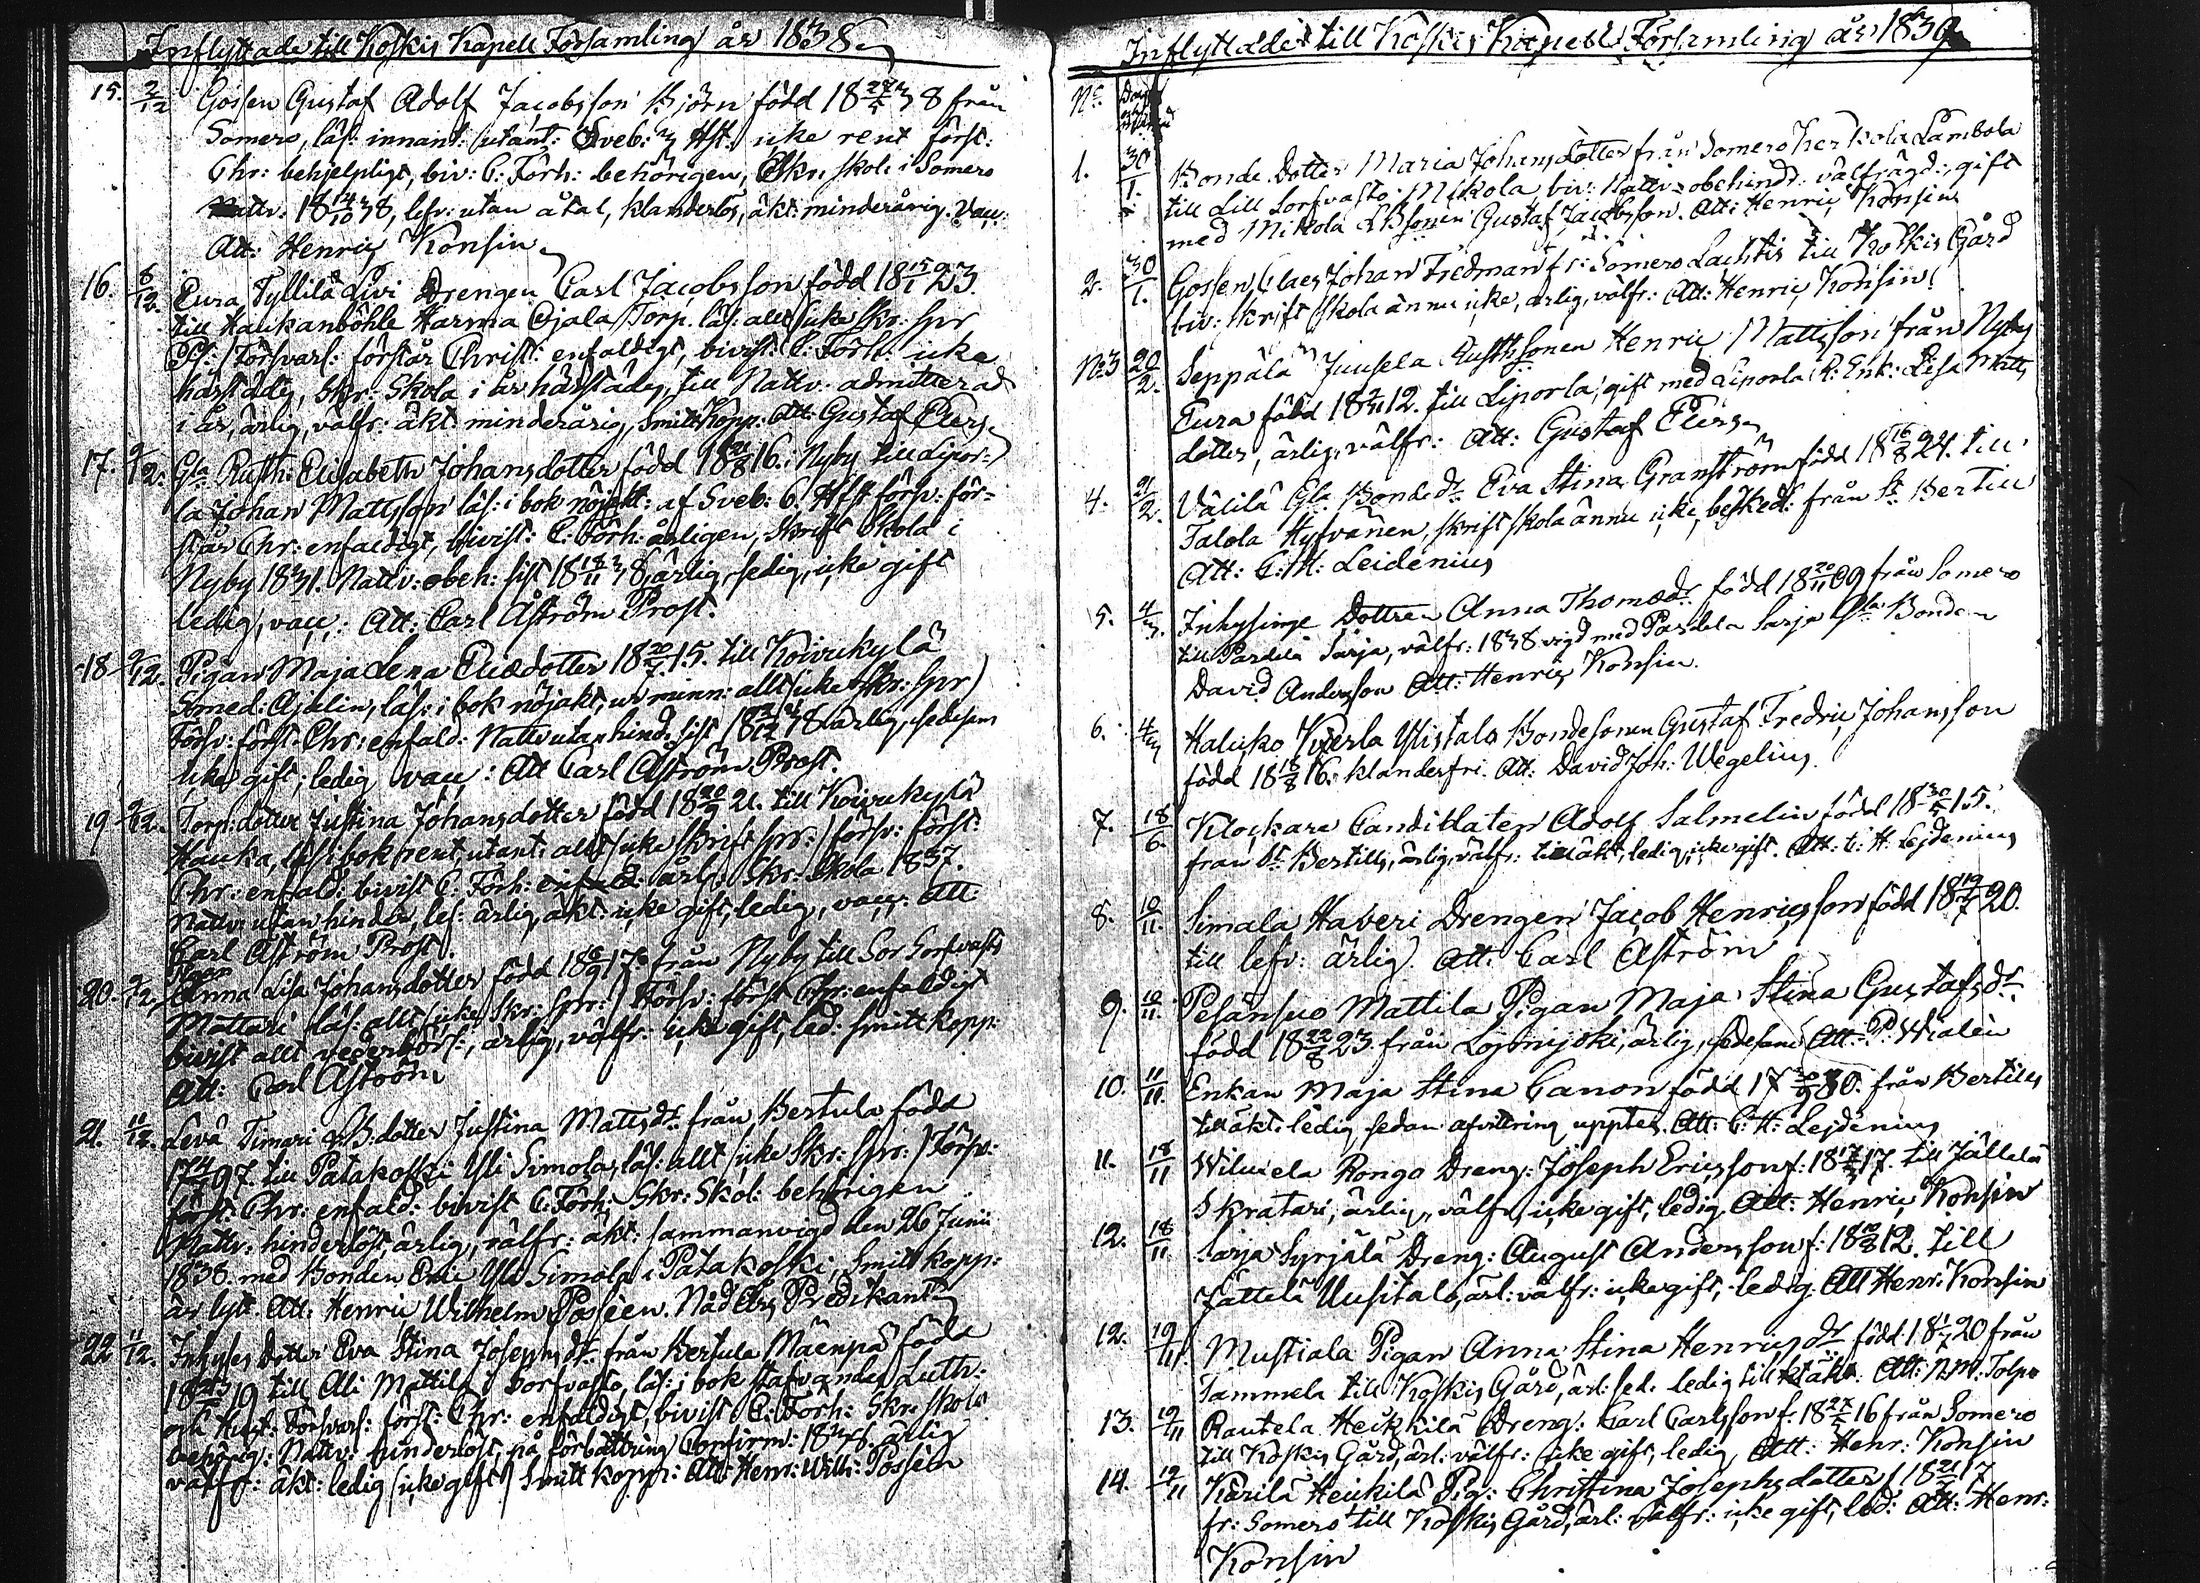 Inflyttade till Koskis Kapell Församling år 1838.
15. 2/12 Gossen Gustaf Adolf Jacobsson Björn född 18 27/5 38 från
Somero, läs: innant: (utant: Sveb: 3 Hft:) icke rent först:
Chr: behjelpligt, biv: C. Förh: behörigen, Skr: Skol: i Somero
Nattv: 18 14/10 38, lefv: utan åtal, klanderlös, äkt: minderårig. Vacc:
Att: Henric Konsin
16. 8/12 Eura Tyllilä Livi Drengen Carl Jacobsson född 18 15/1 23.
till Haukanböhle Harma Ojala Torp. läs: allt (icke Skr: Spr
Ps:) Försvarl: förstår Christ: enfaldigt, bivist: C. Förh: icke
härstädes, Skr: Skola i år härstädes, till Nattv: admitterad
i år, ärlig, välfr: äkt: minderårig, Smittkopp: Att: Gustaf Elers
17. 9/12 Gla Rusth: Elisabeth Johansdotter född 18 21/8 16. i Nyby till Lipor-
la Johan Mattsson läs: i bok nöjakt: af Sveb: 6. Hfst försv: för-
står Chr: enfaldigt, bivist: C: Förh: årligen, Skrift Skola i
Nyby 1831. Nattv: obeh: sist 18 18/11 38, ärlig, sedig, icke gift
ledig, vacc: Att: Carl Åström Prost.
18 9/12. Pigan Maja Lena Eliædotter 18 20/5 15. till Koivukylä
Smed: Ajalin, läs: i bok nöjakt, ur minn: allt (icke Skr: Spr)
Försv: först: Chr: enfald: Nattv utan hind: sist 18 2/12 38 ärlig, sedesam
icke gift, ledig vacc: Att Carl Åström Prost.
19 9/12. Torp: dotter Justina Johansdotter född 18 20/9 21. till Koivukylä
Hauka, läs: i bok rent, utant: allt (icke Skrift Spr:) försv: först:
Chr: enfald: bivist C. Förh: enfald: årl: Skr: Skola 1837.
Nattv: utan hinder, lef: ärlig, äkt: icke gift, ledig, vacc. Att
Carl Åström Prost.
Pigan
20. 9/12. Anna Lisa Johansdotter född 18 6/9 17. från Nyby till Sor Sorfvasto
Mattari läs: allt (icke Skr: Spr:) Försv: först Chr: enfaldigt
bivist allt vederbörl:, ärlig, välfr: icke gift, led: smittkopp:
Att: Carl Åström
21. 11/12. Levä Timari B: dotter Justina Mattsdr. från Bertula född
17 4/2 97. till Patakoski Yli Simola, läs: allt (icke Skr: Spr:) Försv:
först: Chr: enfald: bivist C. Förh: Skr: Skol: behörigen
Nattv: hinderlöst, ärlig, välfr: äkt: sammanvigd den 26 Junii
1838. med Bonden Eric Yli Simola i Patakoski, Smittkopp:
är lytt. Att: Henric Wilhelm Passéen. Nåd Års Predikant
22 11/12. Inhyses Dotter Eva Stina Josephsdr. från Bertula Mäenpä född
19 till Ali Mattila i Sorfvasto, läs: i bok stafvande, Luth:
och Hust: Försvarl: först: Chr: enfaldigt, bivist C: Förh: Skr: Skola
behörig: Nattv: hinderlöst, på förbättring Confirm: ärlig
välfr: äkt: ledig (icke gift) Smittkopp: Att: Henr: Wilh: Passéen
Inflyttade till Koskis Kapell Församling år 1839.
No. Dag
1. 30/1. Bonde Dotter Maria Johansdotter från Somero Kerkola Lambola
till Lill Sorfvasto Mikola biv: Nattv: obehindr: välfrägd:, gift
med Mikola Bsonen Gustaf Jacobsson. Att: Henric Konsin
2. 30/1. Gossen Claes Johan Fredman fr: Somero Lachtis till Koskis Gård
biv: Skrift Skola ännu icke, ärlig, välfr: Att: Henric Konsin.
No. 3 20/2. Seppälä Juusela Rusth: Sonen Henric Mattsson från Nyby
Eura född 18 12. till Liporla, gift med Liporla R: Enk: Lisa Matts
dotter, ärlig, välfr: Att: Gustaf Elers
4. 21/2. Välilä Gla Bondedr. Eva Stina Granström född 18 16/8 24. till
Talola Hyfvänen, Skrift Skola ännu icke, besked: från St Bertill
Att: C. H: Leidenius
5. 4/3. Inhysinge Dottren Anna Thomædr: född 18 20/11 09 från Somero
till Pardela Sarja, välfr: 1838 vigd med Pardela Sarja Gla Bonden
David Andersson Att: Henric Konsin.
6. 4/3 Haliko Kyerla Ylistalo Bondesonen Gustaf Fredric Johansson
född 18 18/8 16. klanderfri. Att: David Joh: Wegelius.
7. 18/6. Klockare Candidaten Adolf Salmelin född 18 30/5 15.
från St. Bertills, ärlig, välfr: till äkt, ledig, icke gift. Att: C: H: Lejdenius
8. 10/11. Simala Haveri Drengen Jacob Henricsson född 18 19/7 20.
till lefv: ärlig. Att: Carl Åström
9. 10/11. Pesänsuo Mattila Pigan Maja Stina Gustafsdr.
född 18 22/8 23. från Lojmijoki, ärlig, sedesam Att: P: Wialén
10. 11/11. Enkan Maja Stina Canon född 17 80. från Bertils
till äkt: ledig sedan afvittring uppter. Att: C: H: Lejdenius
11. 18/11 Wiluxela Rongo Dreng: Joseph Ericsson f: 18 17. till Jällelä
Skratari, ärlig, välfr, icke gift, ledig Att: Henric Konsin
12. 18/11 Sarja Syrjälä Dreng: August Andersson f: 18 10/8 12. till
Jättelä Uusitalo, ärl: välfr: icke gift, ledig. Att Henr: Konsin
12. 19/11 Mustiala Pigan Anna Stina Henricsdr född 18 1/7 20 från
Tammela till Koskis Gård, ärl: sed. ledig till äkt: Att: N. M: Tolpo
13. 19/11 Rautela Heikkilä Dreng: Carl Carlsson f: 18 27/5 16 från Somero
till Koskis Gård, ärl: välfr: icke gift, ledig. Att: Henr: Konsin
14. 19/11 Karilä Heikilä Pig: Christina Josephsdotter f. 18 21 17
fr: Somero till Koskis Gård, ärl: välfr: icke gift, led: Att: Henr:
Konsin